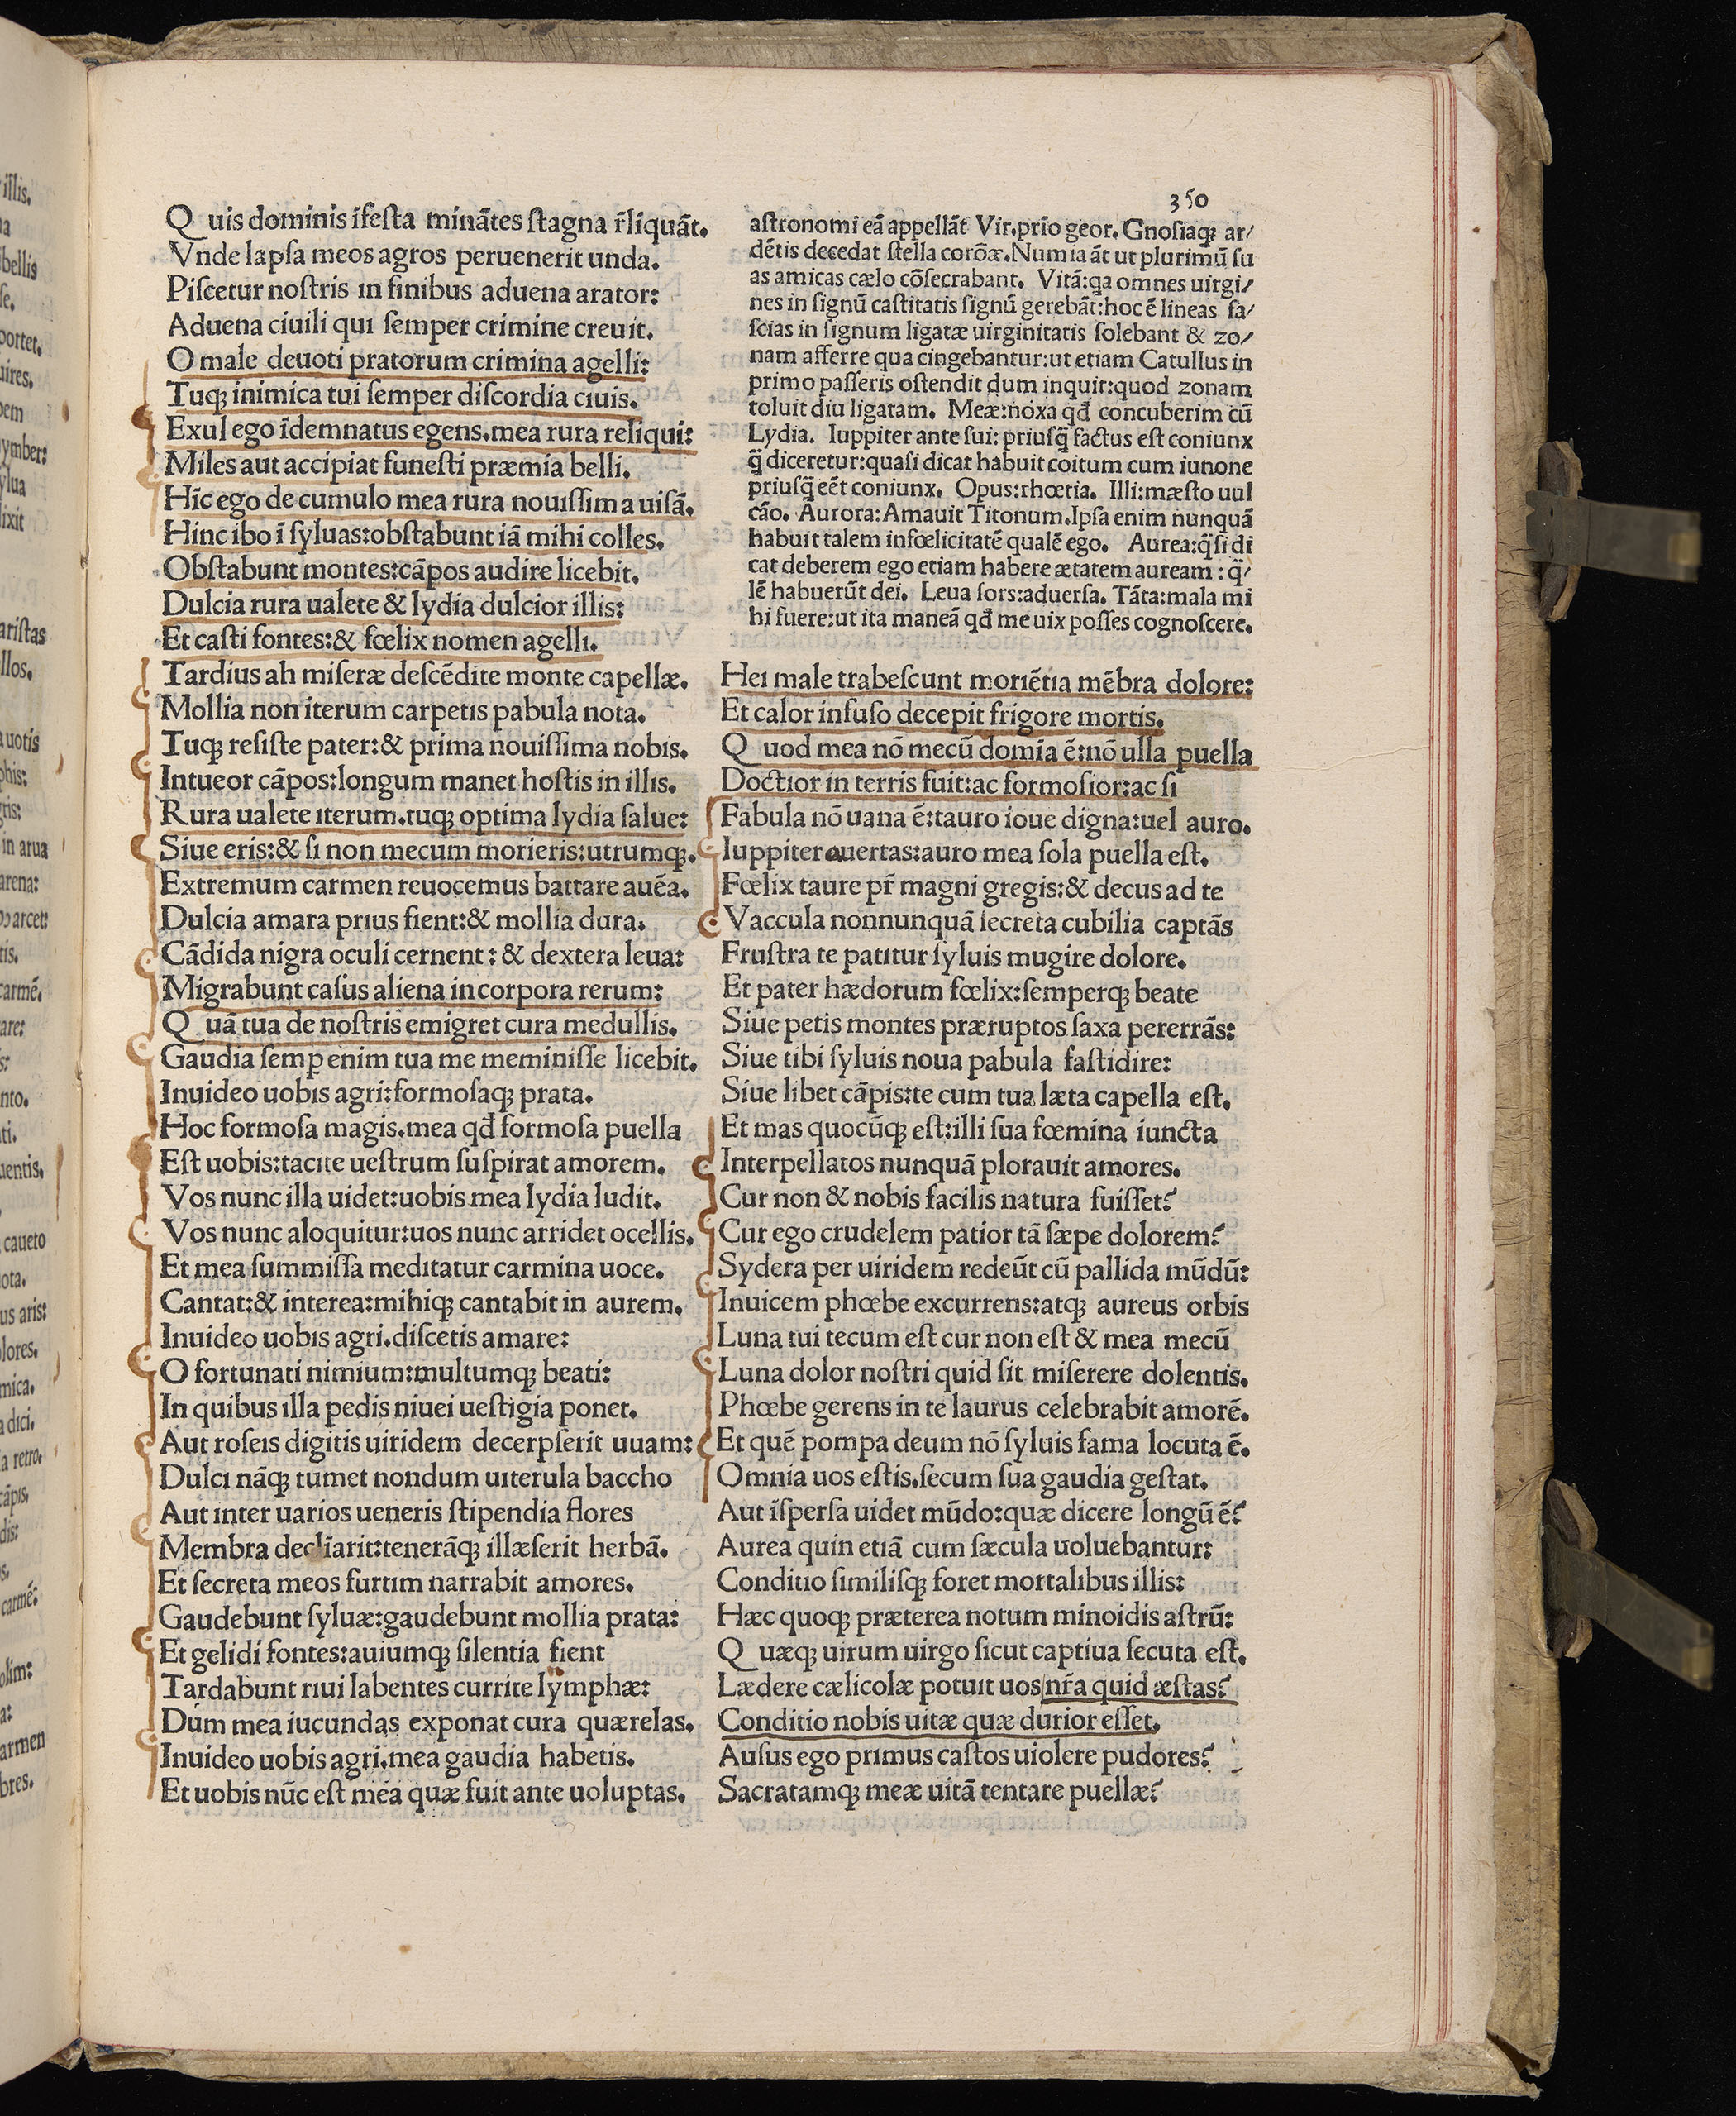 350
Q uis dominis ĩfesta minãtes stagna r̃liquãt.
Vnde lapsa meos agros peruenerit unda.
Piscetur nostris in finibus aduena arator:
Aduena ciuili qui semper crimine creuit.
O male deuoti pratorum crimina agelli:
Tuqꝫ inimica tui semper discordia ciuis.
Exul ego ĩdemnatus egens.mea rura reliqui:
Miles aut accipiat funesti præmia belli.
Hĩc ego de cumulo mea rura nouissima uisã.
Hinc ibo ĩ syluas:obstabunt iã mihi colles.
Obstabunt montes:cãpos audire licebit.
Dulcia rura ualete & lydia dulcior illis:
Et casti fontes:& fœlix nomen agelli.
Tardius ah miseræ descẽdite monte capellæ.
Mollia non iterum carpetis pabula nota.
Tuqꝫ resiste pater:& prima nouissima nobis.
Intueor cãpos:longum manet hostis in illis.
Rura ualete iterum.tuqꝫ optima lydia salue:
Siue eris:& si non mecum morieris:utrumqꝫ.
Extremum carmen reuocemus battare auẽa.
Dulcia amara prius fient:& mollia dura.
Cãdida nigra oculi cernent: & dextera leua:
Migrabunt casus aliena in corpora rerum:
Q uã tua de nostris emigret cura medullis.
Gaudia semꝑ enim tua me meminisse licebit.
Inuideo uobis agri:formosaqꝫ prata.
Hoc formosa magis.mea qđ formosa puella
Est uobis:tacite uestrum suspirat amorem.
Vos nunc illa uidet:uobis mea lydia ludit.
Vos nunc aloquitur:uos nunc arridet ocellis.
Et mea summissa meditatur carmina uoce.
Cantat:& interea:mihiqꝫ cantabit in aurem.
Inuideo uobis agri.discetis amare:
O fortunati nimium:multumqꝫ beati:
In quibus illa pedis niuei uestigia ponet.
Aut roseis digitis uiridem decerpserit uuam:
Dulci nãqꝫ tumet nondum uiterula baccho
Aut inter uarios ueneris stipendia flores
Membra declĩarit:tenerãqꝫ illæserit herbã.
Et secreta meos furtim narrabit amores.
Gaudebunt syluæ:gaudebunt mollia prata:
Et gelidi fontes:auiumqꝫ silentia fient
Tardabunt riui labentes currite lymphæ:
Dum mea iucundas exponat cura quærelas.
Inuideo uobis agri.mea gaudia habetis.
Et uobis nũc est mea quæ fuit ante uoluptas.
astronomi eã appellãt Vir.prĩo geor. Gnosiaqꝫ ar/
dẽtis decedat stella corõæ.Numia ãt ut plurimũ su
as amicas cælo cõsecrabant. Vitã:qa omnes uirgi/
nes in signũ castitatis signũ gerebãt:hoc ẽ lineas fa/
scias in signum ligatæ uirginitatis solebant & zo/
nam afferre qua cingebantur:ut etiam Catullus in
primo passeris ostendit dum inquit:quod zonam
toluit diu ligatam. Meæ:noxa qđ concuberim cũ
Lydia. Iuppiter ante sui: priusq̃ factus est coniunx
q̃ diceretur:quasi dicat habuit coitum cum iunone
priusq̃ eẽt coniunx. Opus:rhœtia. Illi:mæsto uul
cão. Aurora:Amauit Titonum.Ipsa enim nunquã
habuit talem infœlicitatẽ qualẽ ego. Aurea:q̃si di
cat deberem ego etiam habere ætatem auream : q̃/
lẽ habuerũt dei. Leua sors:aduersa. Tãta:mala mi
hi fuere:ut ita maneã qđ me uix posses cognoscere.
Hei male trabescunt moriẽtia mẽbra dolore:
Et calor infuso decepit frigore mortis.
Q uod mea nõ mecũ domĩa ẽ:nõ ulla puella
Doctior in terris fuit:ac formosior:ac si
Fabula nõ uana ẽ:tauro ioue digna:uel auro.
Iuppiter auertas:auro mea sola puella est.
Fœlix taure pr̃ magni gregis:& decus ad te
Vaccula nonnunquã secreta cubilia captãs
Frustra te patitur syluis mugire dolore.
Et pater hædorum fœlix:semperqꝫ beate
Siue petis montes præruptos saxa pererrãs:
Siue tibi syluis noua pabula fastidire:
Siue libet cãpis:te cum tua læta capella est.
Et mas quocũqꝫ est:illi sua fœmina iuncta
Interpellatos nunquã plorauit amores.
Cur non & nobis facilis natura fuisset?
Cur ego crudelem patior tã sæpe dolorem?
Sydera per uiridem redeũt cũ pallida mũdũ:
Inuicem phœbe excurrens:atqꝫ aureus orbis
Luna tui tecum est cur non est & mea mecũ
Luna dolor nostri quid sit miserere dolentis.
Phœbe gerens in te laurus celebrabit amorẽ.
Et quẽ pompa deum nõ syluis fama locuta ẽ.
Omnia uos estis.secum sua gaudia gestat.
Aut ĩspersa uidet mũdo:quæ dicere longũ ẽ?
Aurea quin etiã cum sæcula uoluebantur:
Conditio similisqꝫ foret mortalibus illis:
Hæc quoqꝫ præterea notum minoidis astrũ:
Q uæqꝫ uirum uirgo sicut captiua secuta est.
Lædere cælicolæ potuit uos nr̃a quid æstas?
Conditio nobis uitæ quæ durior esset.
Ausus ego primus castos uiolere pudores?
Sacratamqꝫ meæ uitã tentare puellæ?